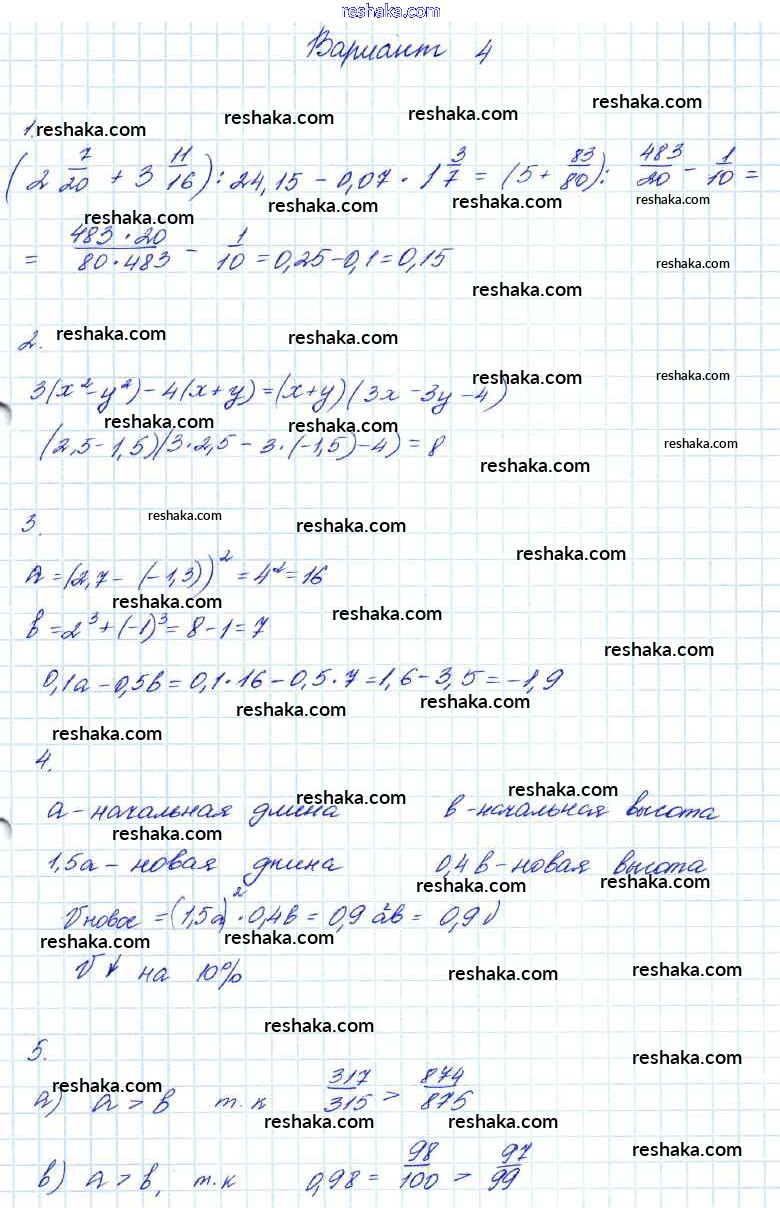 reshaka.com
Вариант 4
reshaka.com reshaka.com reshaka.com
1.
(2 7/20 + 3 11/16) : 24,15 - 0,07 · 1 3/7 = (5 + 83/80) : 483/20 - 1/10 =
reshaka.com reshaka.com reshaka.com
= 483·20/80·483 - 1/10 = 0,25 - 0,1 = 0,15
reshaka.com
reshaka.com
2.
reshaka.com reshaka.com
reshaka.com reshaka.com
3(x² - y²) - 4(x + y) = (x + y)(3x - 3y - 4)
reshaka.com reshaka.com
(2,5 - 1,5)(3·2,5 - 3·(-1,5) - 4) = 8
reshaka.com
reshaka.com
3.
reshaka.com reshaka.com
reshaka.com
a = (2,7 - (-1,3))² = 4² = 16
reshaka.com reshaka.com
b = 2³ + (-1)³ = 8 - 1 = 7
reshaka.com
0,1a - 0,5b = 0,1·16 - 0,5·7 = 1,6 - 3,5 = -1,9
reshaka.com reshaka.com
reshaka.com
4.
reshaka.com reshaka.com
a - начальная длина b - начальная высота
reshaka.com
1,5a - новая длина 0,4b - новая высота
reshaka.com reshaka.com
Vновое = (1,5a)² · 0,4b = 0,9a²b = 0,9V
reshaka.com reshaka.com
V↓ на 10%
reshaka.com reshaka.com
reshaka.com
5.
reshaka.com
reshaka.com
a) a > b т.к 317/315 > 874/875
reshaka.com reshaka.com
reshaka.com
b) a > b, т.к 0,98 = 98/100 > 97/99